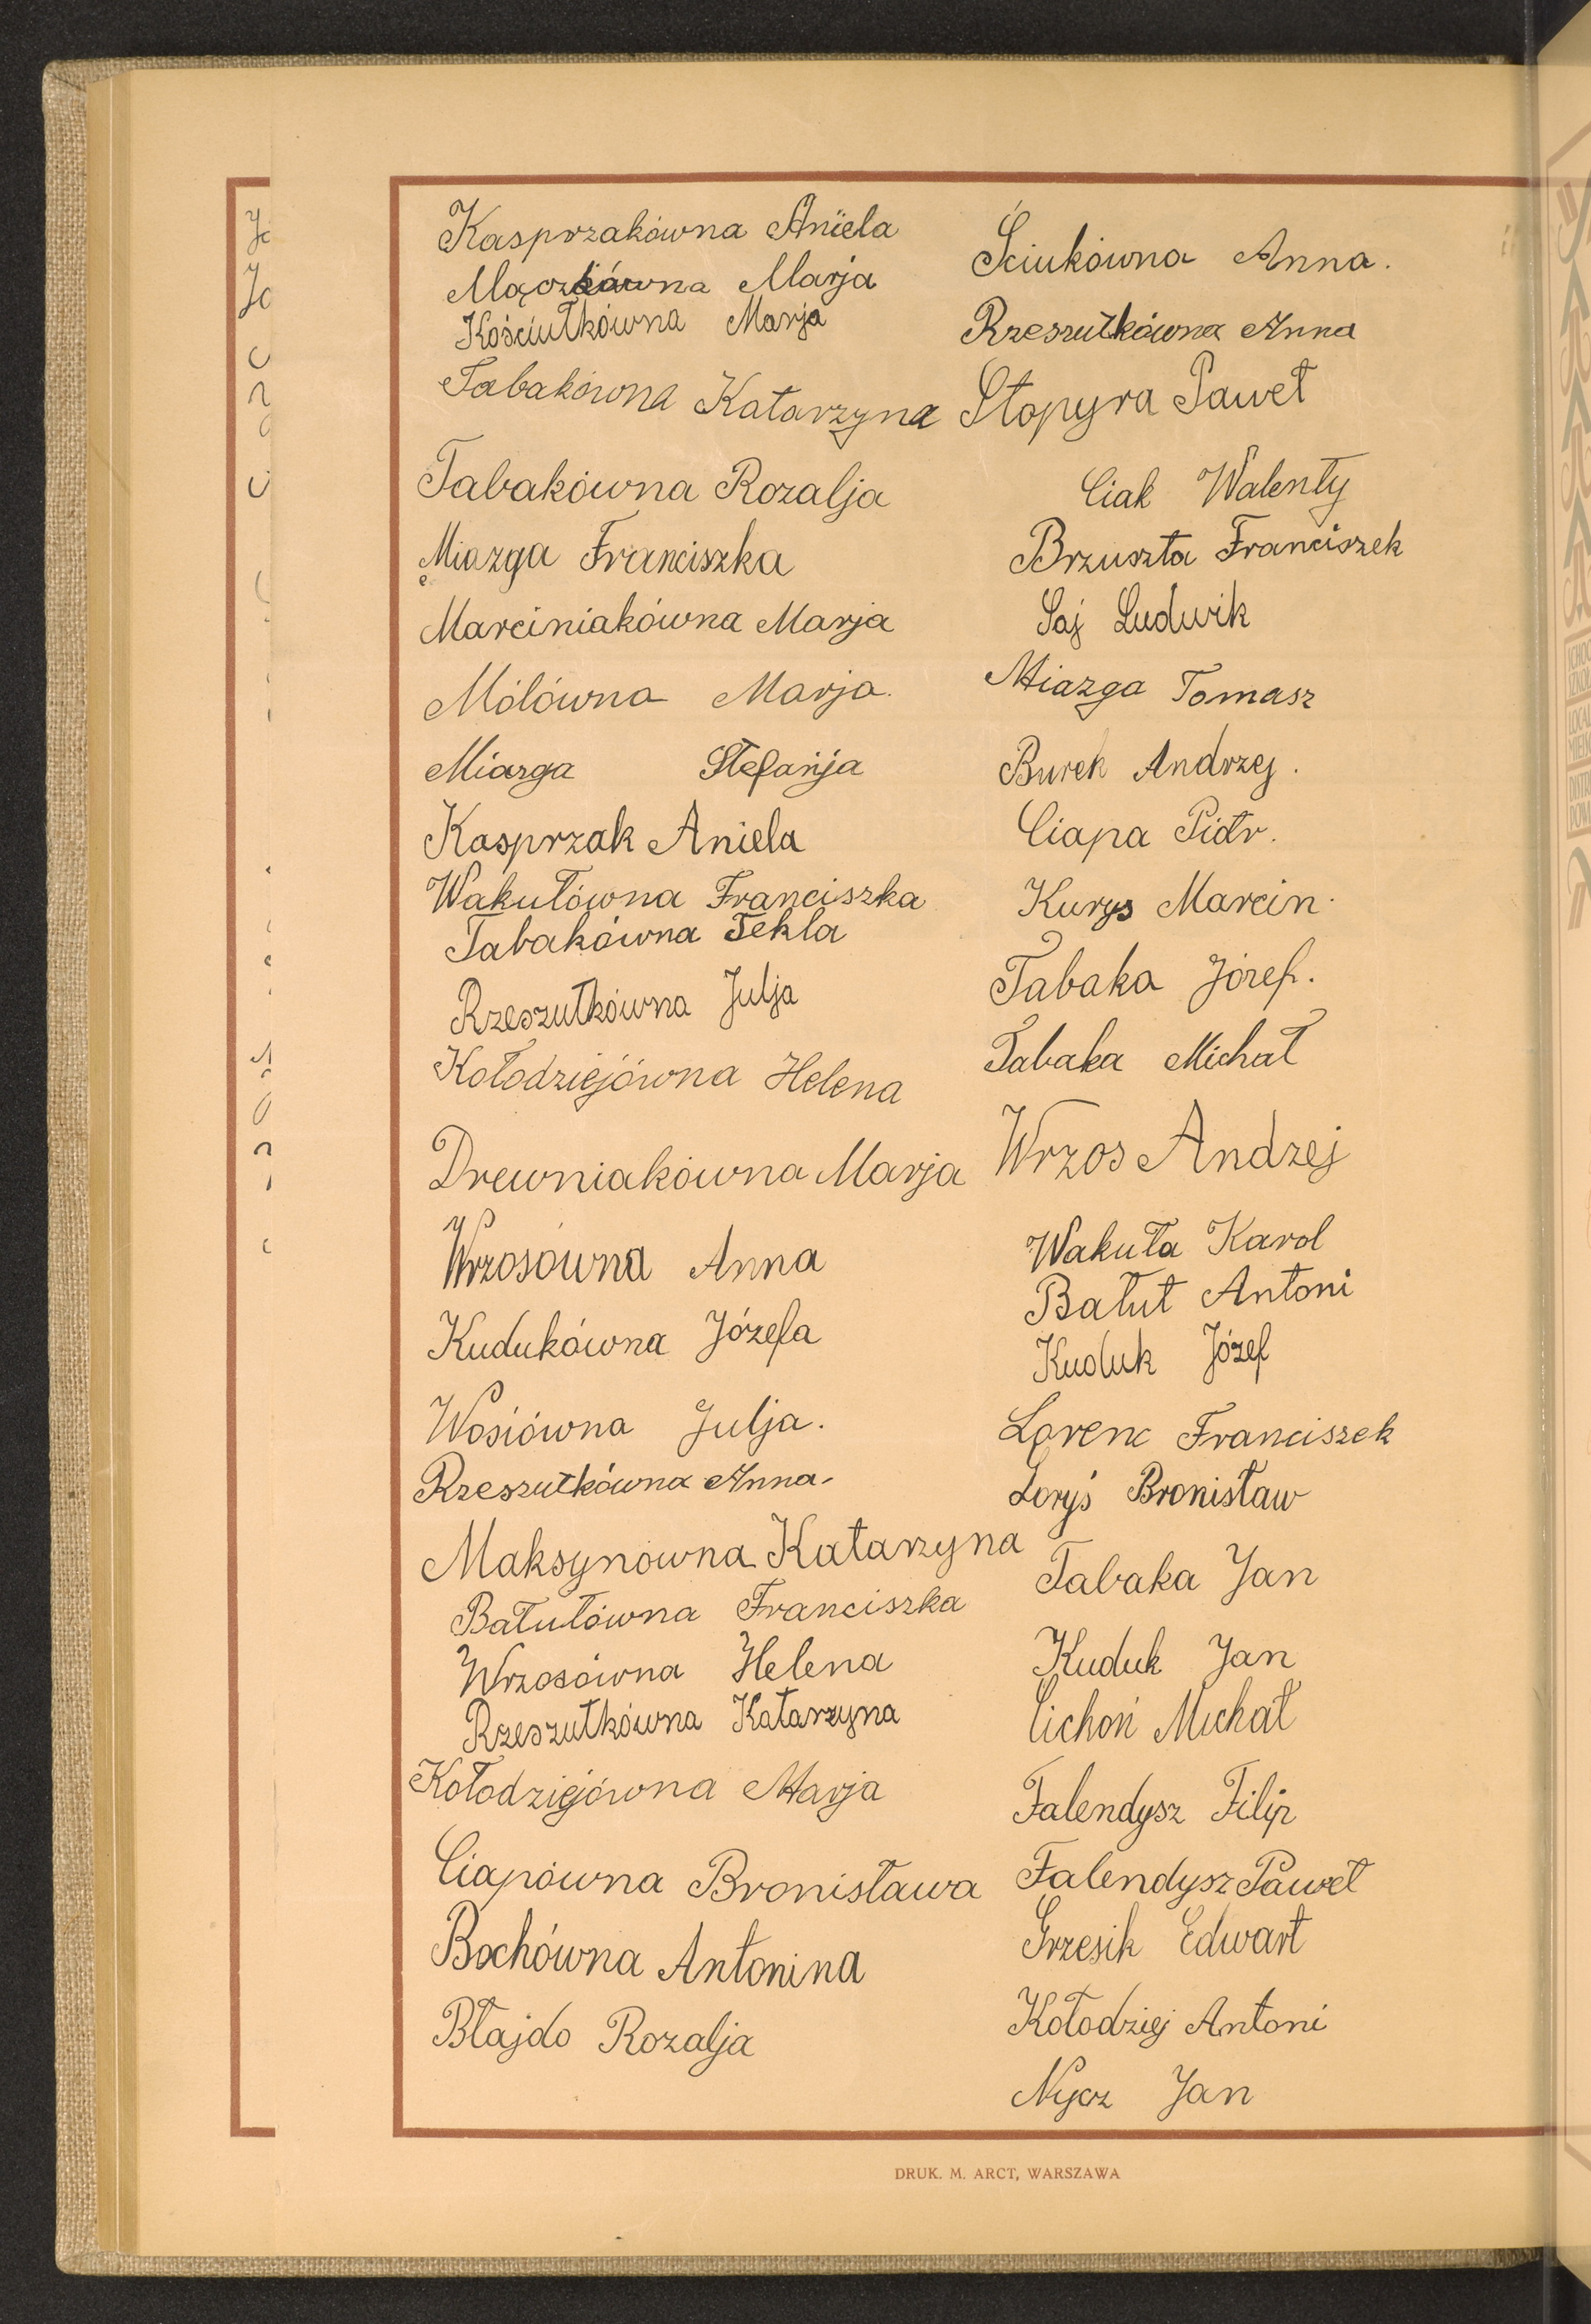 Kasprzakówna Aniela
Mączkówna Marja
Kościułkówna Marja
Tabakówna Katarzyna
Tabakówna Rozalja
Miazga Franciszka
Marciniakówna Marja
Mólówna Marja.
Miazga Stefanja
Kasprzak Aniela
Wakułówna Franciszka
Tabakówna Tekla
Rzeszutkówna Julja
Kołodziejówna Helena
Drewniakówna Marja
Wrzosówna Anna
Kudukówna Józefa
Wosiówna Julja.
Rzeszutkówna Anna.
Maksynowna Katarzyna
Batutówna Franciszka
Wrzosówna Helena
Rzeszutkówna Katarzyna
Kołodziejówna Marja
Ciapówna Bronisława
Bochówna Antonina
Błajdo Rozalja
Ściukówna Anna.
Rzeszutkówna Anna
Stopyra Paweł
Ciak Walenty
Brzuszta Franciszek
Saj Ludwik
Miazga Tomasz
Burek Andrzej.
Ciapa Piotr.
Kurys Marcin.
Tabaka Józef.
Tabaka Michał
Wrzos Andzej
Wakuła Karol
Batut Antoni
Kuduk Józef
Lorenc Franciszek
Loryś Bronisław
Tabaka Jan
Kuduk Jan
Cichoń Michał
Falendysz Filip
Falendysz Paweł
Grzesik Edwart
Kołodziej Antoni
Nycz Jan
DRUK. M. ARCT, WARSZAWA